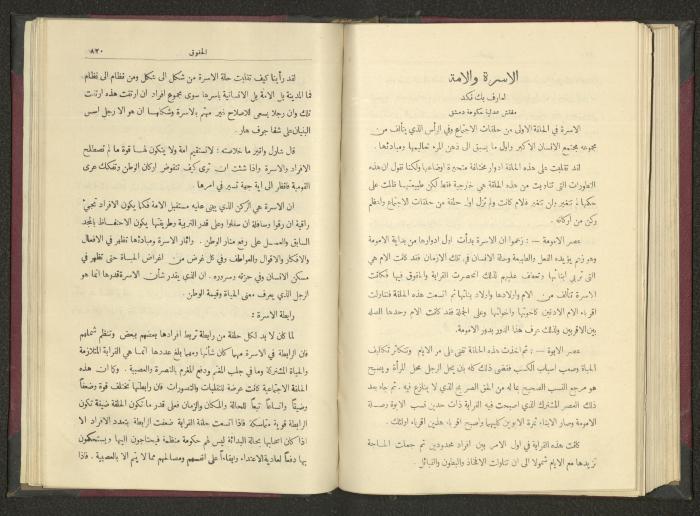 الاسرة والامة
لعارف بك نكد
مفتش عدلية حكومة دمشق
الاسرة هي الحلقة الاولى من حلقات الاجتماع وهي الرأس الذي يتألف من
مجموعه مجتمع الانسان الاكبر واول ما يسبق الى ذهن المرء تعاليمها ومبادئها .
لقد تقلبت على هذه الحلقة ادوار مختلفة متحيرة اوضاعها ولكننا نقول ان هذه
التطورات التي تناوبت من هذه الحلقة هي خارجية فقط لكن طبيعتها ظلت على
حكمها لم تتغير ولن تتغير فلام كانت ولم تزل اول حلقة من حلقات الاجتماع واعظم
ركن من اركانه .
عصر الامومة — : زعموا ان الاسرة بدأت اول ادوارها من بداية الامومة
وهو زعم يؤيده العقل والطبيعة وحالة الانسان في تلك الازمان فقد كانت الام هي
التي تربي ابنائها وتعطف عليهم لذلك انحصرت القرابة والحقوق فيها فكانت
الاسرة تتألف من الام واولادها واولاد بناتها ثم اتسعت هذه الحلقة فتناولت
اقرباء الام الادنين كاخوتها واخواتها وعلى الجملة فقد كانت الام وحدها الصلة
بين الاقربين ولذلك عرف هذا الدور بدور الامومة .
عصر الابوة — : ثم اخذت هذه الحلقة تنمى على مر الايام وتتكاثر تكاليف
الحياة وصعب اسباب الكسب فقضى ذلك كله بان يحل الرجل محل المرأة ويصبح
هو مرجع النسب الصحيح بماله من الحق الصريح الذي لا ينازع فيه . ثم جاء بعد
ذلك العصر المشترك الذي اصبحت فيه القرابة ذات حدين نسب الابوة وصلة
الامومة وصار الابناء ثمرة الابوين كليهما واصبح اقرباء هذين اقرباء اولئك .
كانت هذه القرابة في اول الامر بين افراد محدودين ثم جعلت الحاجة
تزيدها مع الايام شمولا الى ان تناولت الافخاذ والبطون والقبائل .
الحقوق
٨٢٠
لقد رأينا كيف تقلبت حالة الاسرة من شكل الى شكل ومن نظام الى نظام
فما المدينة بل الامة بل الانسانية باسرها سوى مجموع افراد ان ارتقت هذه ارتقت
تلك وان رجلا يسعى للاصلاح غير مهتم بالاسرة وشكلها ان هو الا رجل اسس
البنيان على شفا جرف هار .
قال شارل واغنير ما خلاصته : لا تستقيم امة ولا يتكون لها قوة ما لم تصطلح
الافراد والاسرة واذا شئت ان ترى كيف تتقوض اركان الوطن وتتفكك عرى
القومية فانظر الى اية جهة تسير في امرها
ان الاسرة هي الركن الذي يبنى عليه مستقبل الامة فكما يكون الافراد تجيء
راقية ان رقوا وسافلة ان سفلوا وعلى قدر التربية وطريقتها يكون الاحتفاظ بالمجد
السابق والعمل على رفع منار الوطن . واثار الاسرة ومبادئها تظهر في الافعال
والافكار والاقوال والعواطف وفي كل غرض من اغراض الحياة حتى تظهر في
مسكن الانسان وفي حزنه وسروره . ان الذي يقدر شأن الاسرة قدرها انما هو
الرجل الذي يعرف معنى الحياة وقيمة الوطن .
رابطة الاسرة :
لما كان لا بد لكل حلقة من رابطة تربط افرادها بعضهم ببعض وتنظم شملهم
فان الرابطة في الاسرة مهما كان شأنها ومهما بلغ عددها انما هي القرابة المتلازمة
والحياة المشتركة وما في جلب المغنم ودفع المغرم بالنصرة والعصبية . وكما ان هذه
الحلقة الاجتماعية كانت عرضة للتقلبات والتصورات فان رابطتها تختلف قوة وضعفاً
وضيقاً واتساعاً تبعاً للحالة والمكان والزمان فعلى قدر ما تكون الحلقة ضيقة تكون
الرابطة قوية متماسكة فاذا اتسعت حلقة القرابة ضعفت الرابطة بتعدد الافراد الا
اذا كان اصحابها بحالة البدائة ليس لهم حكومة منظمة فيحتاجون اليها ويستمسكون
بها دفعاً لعادية الاعتداء وابقاءً على انفسهم ومصالحهم مما لا يتم الا بالعصبية . فاذا